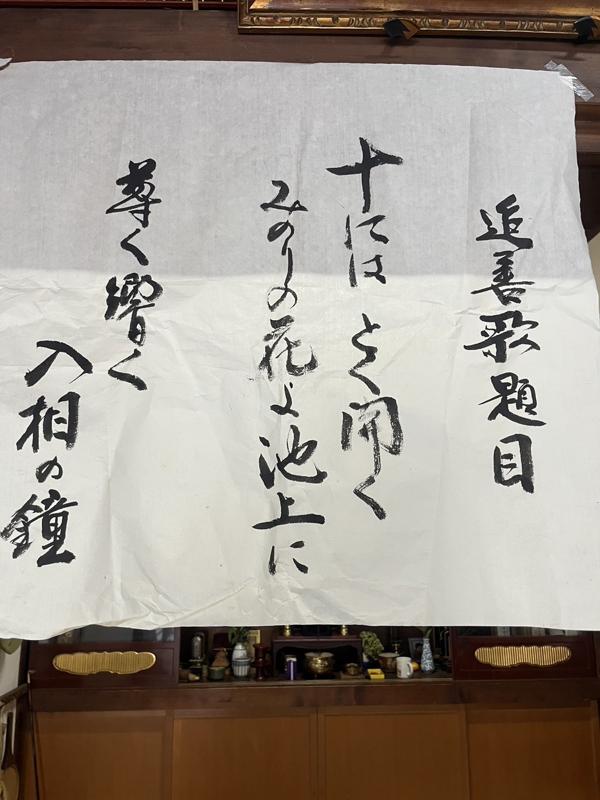 追善歌題目
十には とく開く
みのりの花よ池上に
尊く響く
入相の鐘